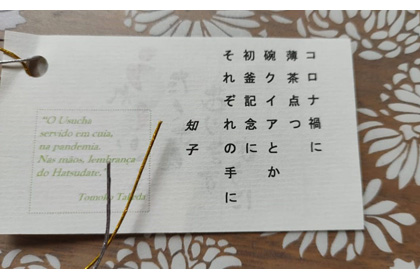 コロナ禍に
薄茶点つ
碗クイアとか
初釜記念に
それぞれの手に
知子
"O Usucha
servido em cuia,
na pandemia.
Nas mãos, lembrança
do Hatsudate."
Tomoko Takeda